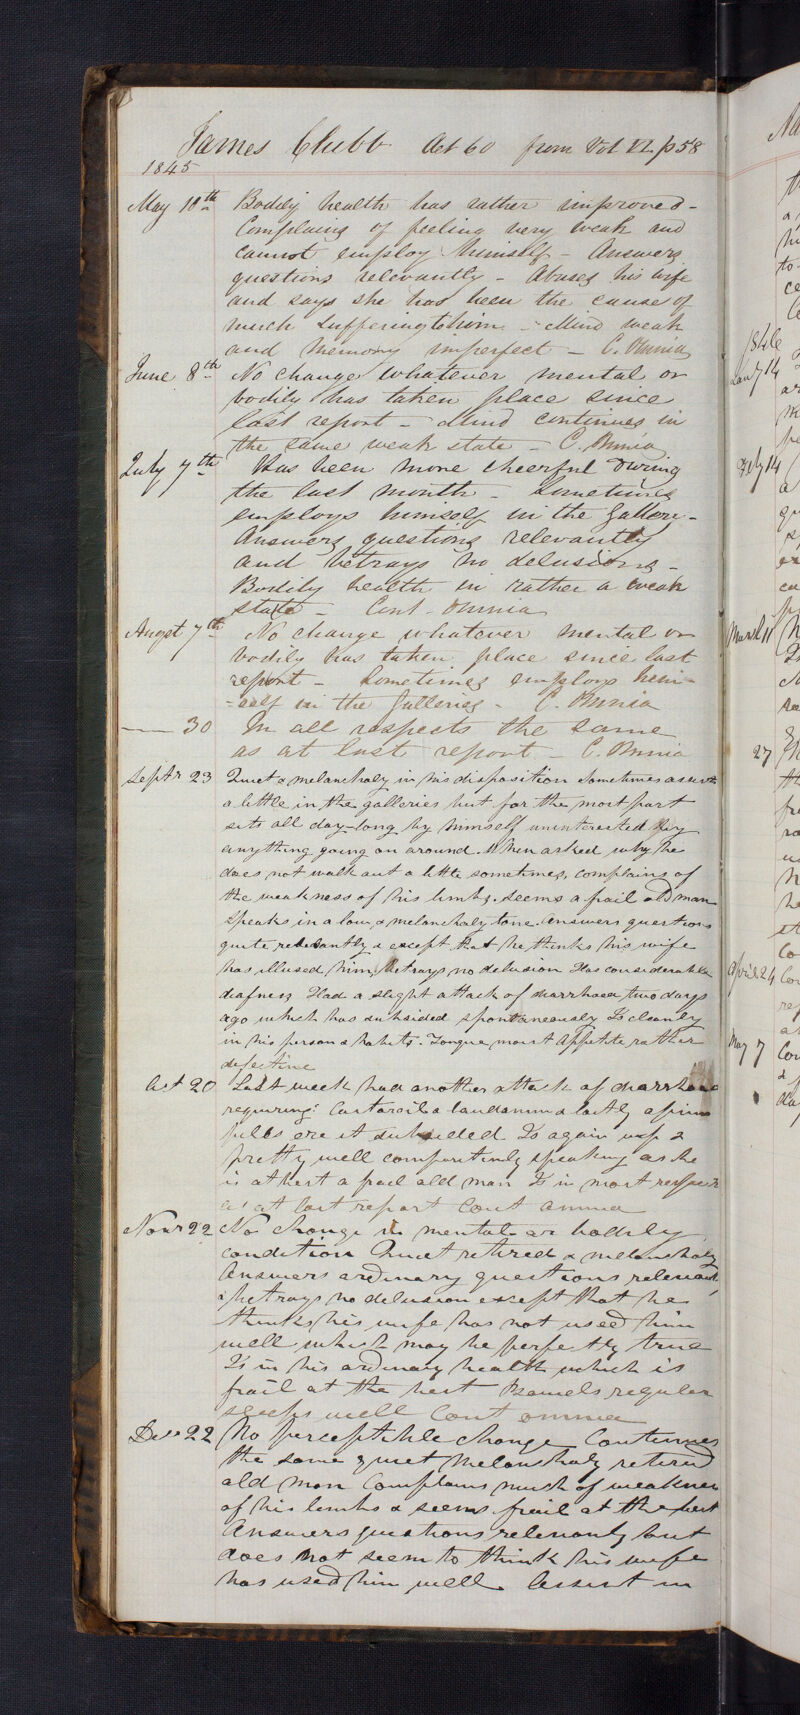 James Clubb Aet 60 from Vol VI p58
1845
May 10th Bodily health has rather improved -
Complains of feeling very weak and
cannot employ himself - Answers
questions relevantly - Abuses his wife
and says she has been the cause of
much suffering to him - Mind weak
and memory imperfect - C. Omnia
June 8th No change whatever mental or
bodily has taken place since
last report - Mind continues in
the same weak state - C. Omnia
July 7th Has been more cheerful during
the last month - Sometimes
employs himself in the Gallery -
Answers questions relevantly
and betrays no delusions -
Bodily health in rather a weak
state - Cont. Omnia
Augst 7th No change whatever mental or
bodily has taken place since last
report - Sometimes employs him-
-self in the Galleries - C. Omnia
—— 30 In all respects the same
as at last report - C. Omnia
Septr 23 Quiet & melancholy in his disposition Sometimes assists
a little in the galleries but for the most part
sits all day-long by himself uninterested by
anything going on around. When asked why he
does not walk out a little sometimes, complains of
the weakness of his limbs. Seems a frail old man
Speaks in a low & melancholy tone. Answers questions
quite relevantly & except that he thinks his wife
has illused him, betrays no delusion Has considerable
deafness Had a slight attack of diarrhoea two days
ago which has subsided spontaneously Is cleanly
in his person & habits. Tongue moist Appetite rather
defective
Oct 20 Last week had another attack of diarrhoea
requiring Castor oil & laudanum & lastly opium
pills ere it subsided Is again up &
pretty well comparatively speaking as he
is at best a frail old man Is in most respects
as at last report Cont omnia
Novr 22 No change in mental or bodily
condition Quiet retired & melancholy
Answers ordinary questions relevantly
& betrays no delusion except that he
thinks his wife has not used him
well which may be perfectly true
Is in his ordinary health which is
frail at the best Bowels regular
sleeps well Cont omnia
Decr 22 No perceptible change Continues
the same quiet melancholy retired
old man Complains much of weakness
of his limbs & seems frail at the best
Answers questions relevantly but
does not seem to think his wife
has used him well. Assist in
1846
Jany 14
Feby 14
March 11
27
April 24
May 7